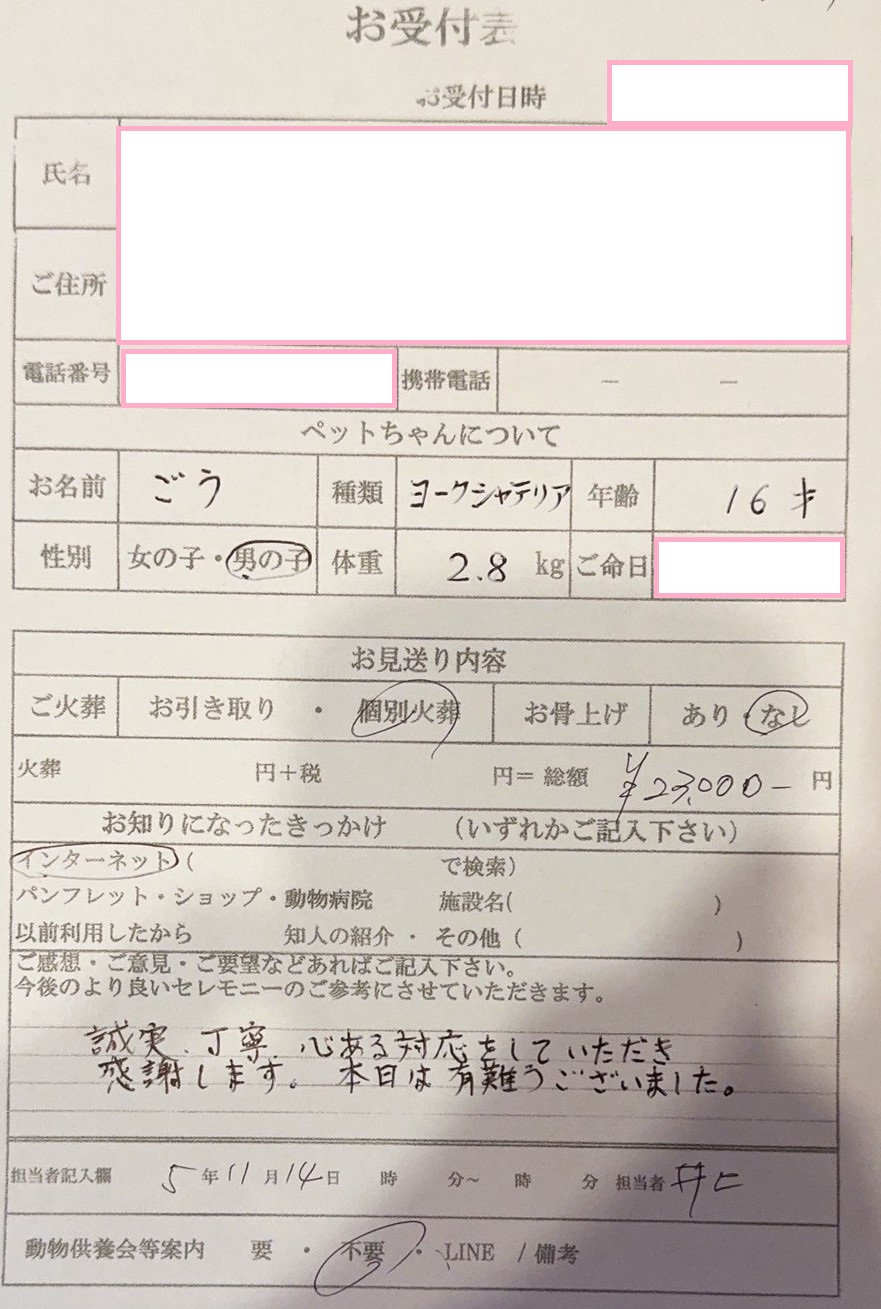 お受付表
お受付日時
氏名
ご住所
電話番号 携帯電話 － －
ペットちゃんについて
お名前 ごう 種類 ヨークシャテリア 年齢 16才
性別 女の子・男の子 体重 2.8 kg ご命日
お見送り内容
ご火葬 お引き取り ・ 個別火葬 お骨上げ あり・なし
火葬 円＋税 円＝ 総額 ¥23,000- 円
お知りになったきっかけ （いずれかご記入下さい）
インターネット（ で検索）
パンフレット・ショップ・動物病院 施設名( )
以前利用したから 知人の紹介 ・ その他（ ）
ご感想・ご意見・ご要望などあればご記入下さい。
今後のより良いセレモニーのご参考にさせていただきます。
誠実、丁寧、心ある対応をしていただき
感謝します。本日は有難うございました。
担当者記入欄 5年11月14日 時 分～ 時 分 担当者 井上
動物供養会等案内 要 ・ 不要 ・ LINE / 備考